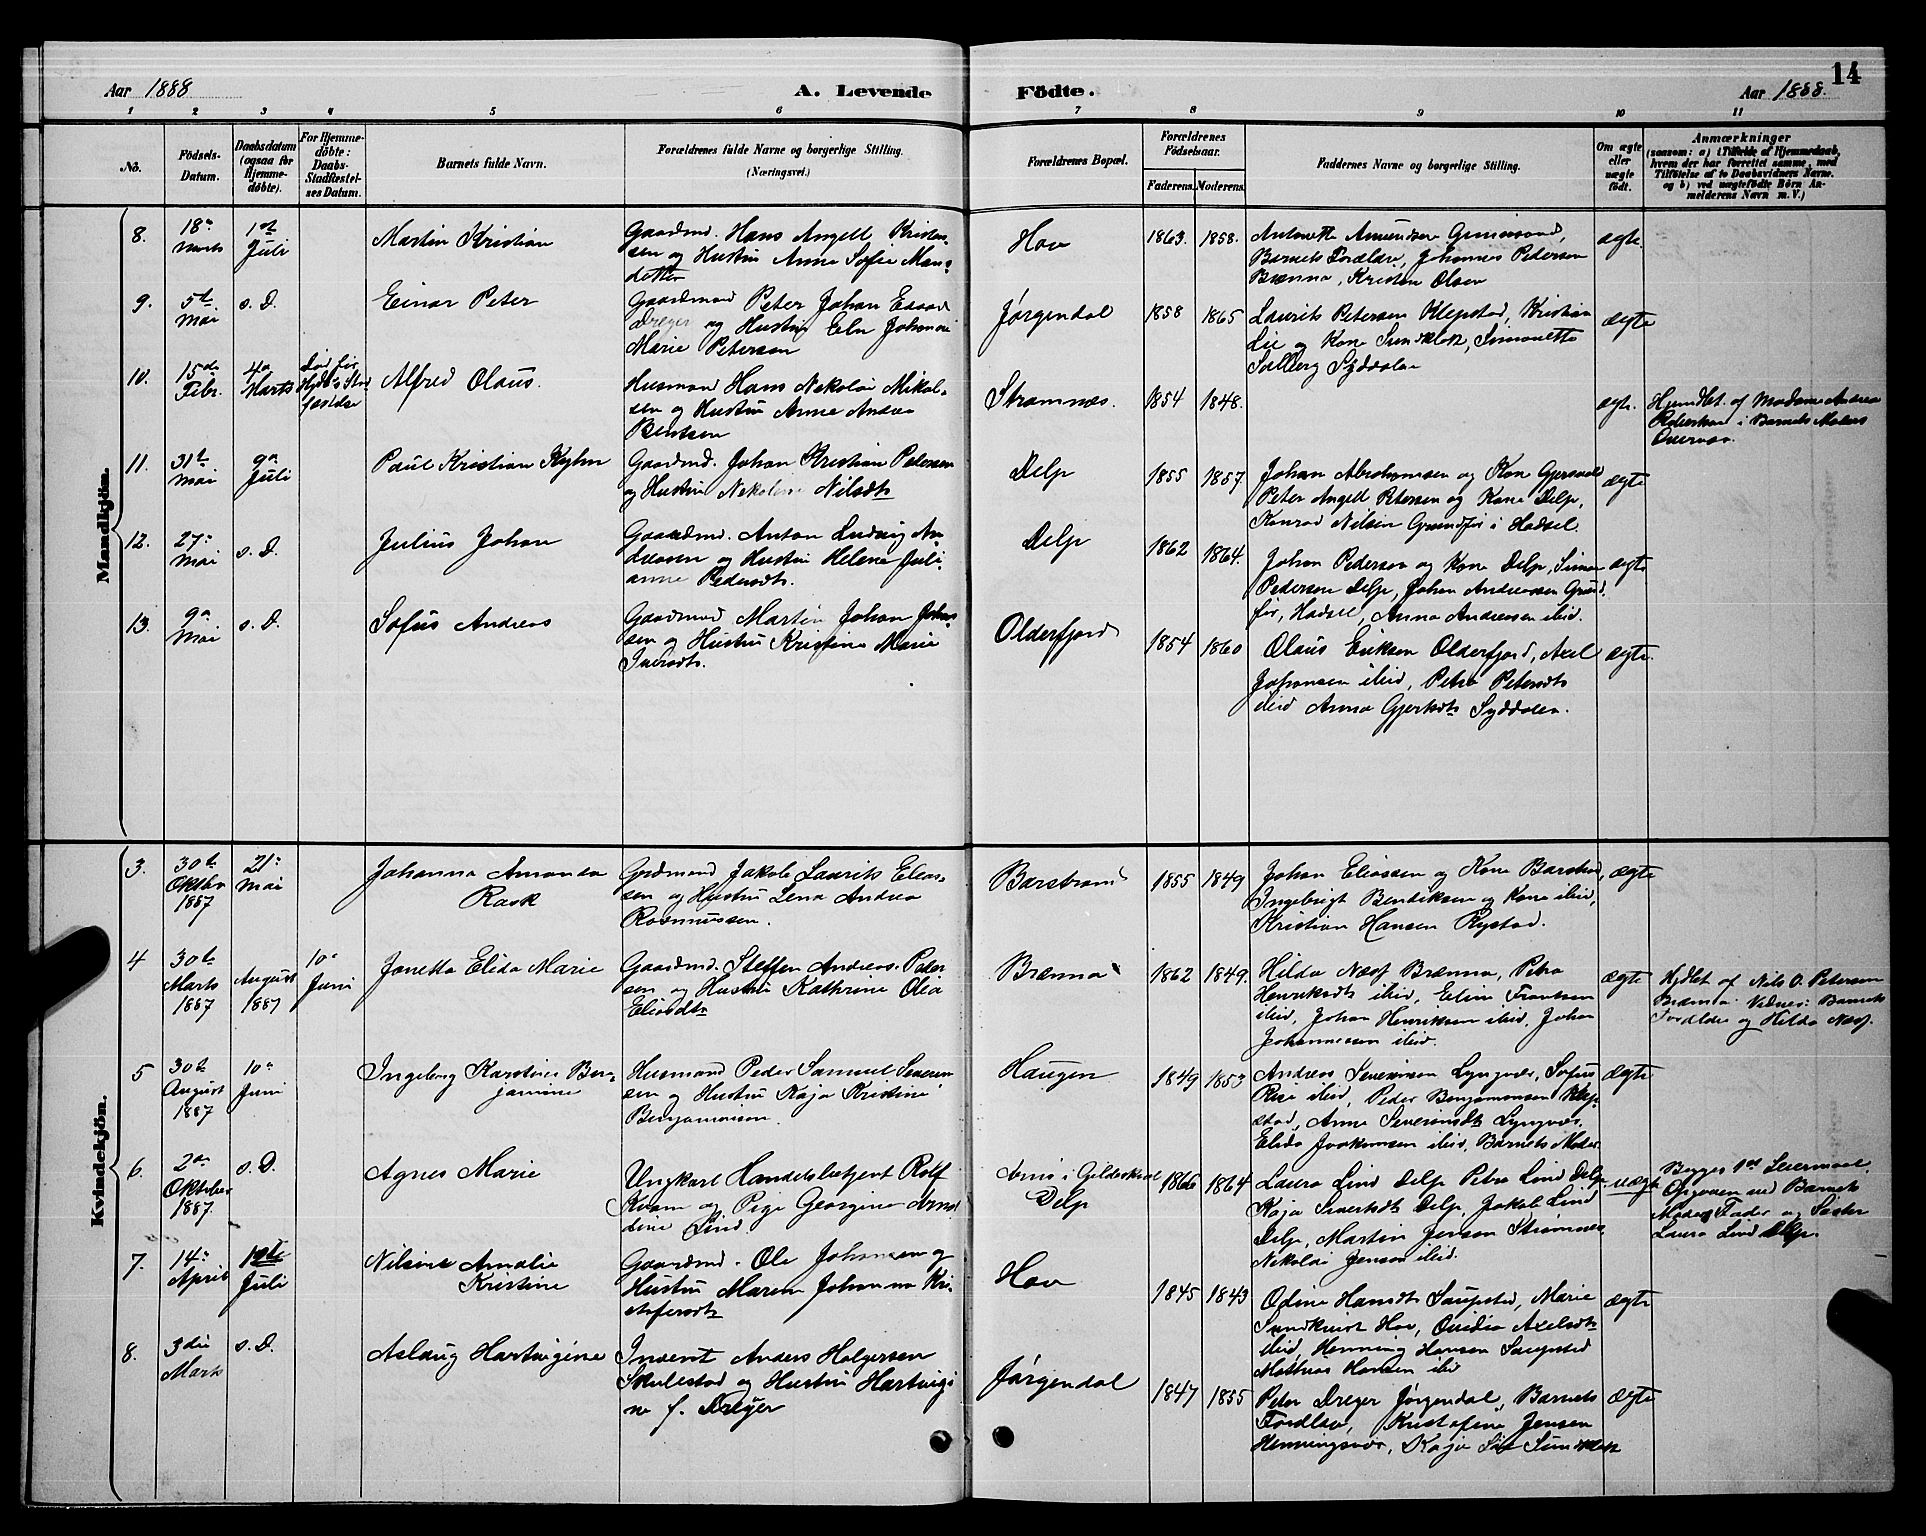 14
Aar 1888
A. Levende
Födte.
Aar 1888.
1 2 3 4 5 6 7 8 9 10 11
No.
Födsels-
Datum.
Daabsdatum
(ogsaa för
Hjemme-
döbte).
For Hjemme-
döbte:
Daabs-
Stadfæstel-
ses Datum.
Barnets fulde Navn.
Forældrenes fulde Navne og borgerlige Stilling.
(Næringsvei.)
Forældrenes Bopæl.
Forældrenes
Födselsaar.
Faderens.
Moderens.
Faddernes Navne og borgerlige Stilling.
Om ægte
eller
uægte
födt.
Anmærkninger
(saasom: a) i Tilfælde af Hjemmedaab,
hvem der har forrettet samme, med
Tilföielse af to Daabsvidners Navne.
og b) ved uægtefödte Börn An-
melderens Navn m. V.)
Mandkjön.
8.
18de
Marts
1ste
Juli
Martin Kristian
Gaardmd. Hans Angell Kristen-
sen og Hustru Anna Sofie Mons-
datter
Hov
1863.
1858.
Antonette Amundsen Gimsesand,
Barnets Forældre, Johannes Pedersen
Brenna, Kristen Olsen
ægte.
9.
5te
Mai
s. D.
Einar Peter
Gaardmand Peter Johan
Dreyer og Hustru Johanna
Marie Petersen
Jørgendal
1858
1865
Laurits Petersen Klepstad, Kristian
Lie og Kone Sundklak, Simonette
Solberg Syddalen
ægte
10.
15de
Febr.
4de
Marts
Alfred Olaus.
Husmand Hans Nekolai Mikal-
sen og Hustru Anna Andrea
Bentsen
Strømnæs.
1854
1848.
ægte.
Hjemdbt. af Madame Andrea
Pedersen i Barnets Moders
11.
31te
Mai
9de
Juli
Paul Kristian
Gaardmd. Johan Kristian Pedersen
og Hustru Nekoline Nilsdtr
Delp
1855
1857
Johan Abrahamsen og Kone
Peter Angell Petersen og Kone Delp,
Konrad Nilsen Grundfør i Hadsel.
ægte
12.
27de
Mai
s. D.
Julius Johan
Gaardmd. Anton Ludvig An-
dreassen og Hustru Helene Juli-
anne Pedersdtr.
Delp
1862
1864.
Johan Pedersen og Kone Delp, Simon
Pedersen Delp, Johan Andreassen Grund-
før, Hadsel, Anna Andreassen ibid.
ægte
13.
9de
Mai
s. D.
Sofus Andreas
Gaardmand Martin Johan Johan-
sen og Hustru Kristine Marie
Iversdtr.
Olderfjord
1854
1860
Olaus Eriksen Olderfjord, Axel
Johansen ibid, Petra Petersdtr
ibid Anna Gjertsdtr Syddalen.
ægte.
Kvindekjön.
3.
30te
Oktbr
1887
21de
Mai
Johanna Amanda
Rask
Grdmand Jakob Laurits Elias-
sen og Hustru Lena Andrea
Rasmussen.
Barstrand
1855
1849
Johan Eliassen og Kone Barstrand,
Ingebrigt Bendiksen og Kone ibid,
Kristian Hansen Rystad.
ægte
4
30te
Marts
1887
August
1887
10de
Juni
Jonetta Elida Marie
Gaardmd. Steffen Andreas Peder-
sen og Hustru Kathrine Olea
Eliasdtr
Brenna
1862
1849.
Hilda Næss Brenna, Petra
Henriksdtr ibid, Eline Frantsen
ibid, Johan Henriksen ibid, Johan
Johannessen ibid.
ægte
Hjdbt af Nils O. Petersen
Brenna. Vidner: Barnets
Forældre og Hilda Næss.
5
30te
August
1887
10de
Juni
Ingeborg Karstine Ben-
jamine
Husmand Peder Samuel Severin-
sen og Hustru Kaja Kristine
Benjaminsen.
Haugen
1849
1853
Andreas Severinsen Lyngvær, Sofus
Risø ibid, Peder Benjaminsen Klep-
stad, Anne Severinsdtr Lyngvær,
Elida Joakimsen ibid, Barnets Moder.
ægte
6.
2den
Oktober
1887
s. D.
Agnes Marie
Ungkarl Handelsbetjent Rolf
Kvam og Pige Georgine Arnol-
dine Lind.
Arnø i Gildeskaal
Delp
1866
1864
Laura Lind Delp Petra Lind Delp,
Kaja Sivertsdtr Delp, Jakob Lind
Delp, Martin Jensen Strømnes,
Nikolai Jensen ibid.
uægte
Begges 1ste Leiermaal
Opgivere ved Barnets
Moders Fader og Søster
Laura Lind Delp.
7.
14de
April
1ste
Juli
Nilsine Amalie
Kristine
Gaardmd. Ole Johansen og
Hustru Maren Johanna Kri-
stofersdtr
Hov
1845
1843
Odine Hansdtr Saupstad, Marie
Sundkvist Hov, Ovidia Axelsdtr
ibid, Henning Hansen Saupstad
Mathias Hansen ibid
ægte
8.
3die
Marts
s. D.
Aslaug Hartvigine
Inderst Anders Holgersen
Skulestad og Hustru Hartvigi-
ne f. Dreyer
Jørgendal
1847
1855
Peter Dreyer Jørgendal, Barnets
Forældre, Kristofine Jensen
Henningsvær, Kaja Lie Sundklak
ægte